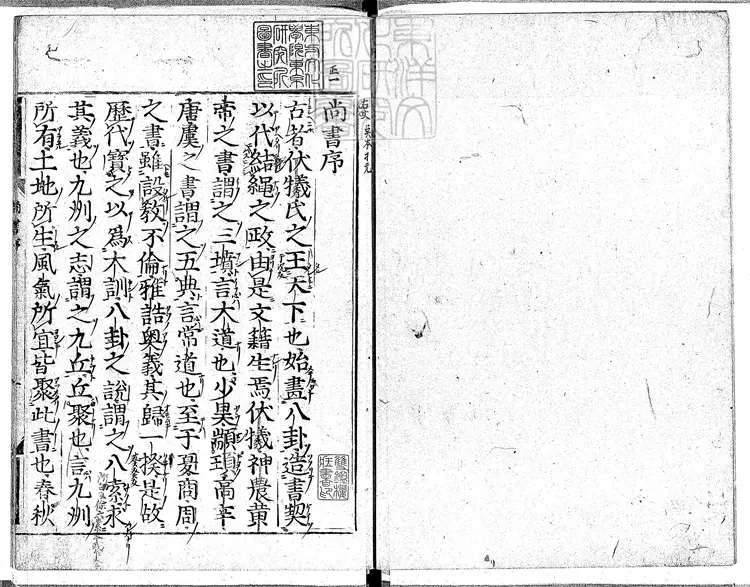 東方文化
學院東京
研究所
圖書之印
正一
尚書序
古者伏犧氏之王天下也始畫八卦造書契
以代結繩之政由是文籍生焉伏犧神農黄
帝之書謂之三墳言大道也少昊顓頊高辛
唐虞之書謂之五典言常道也至于夏商周
之書雖設教不倫雅誥奧義其歸一揆是故
歷代寶之以爲大訓八卦之說謂之八索求
其義也九州之志謂之九丘丘聚也言九州
所有土地所生風氣所宜皆聚此書也春秋